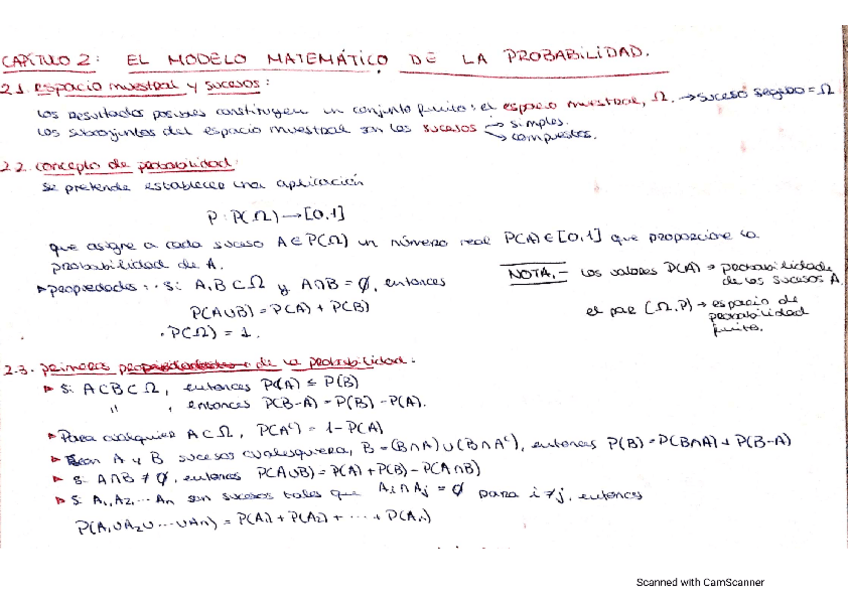 CAPÍTULO 2: EL MODELO MATEMÁTICO DE LA PROBABILIDAD.
2.1. espacio muestral y sucesos:
Los resultados posibles constituyen un conjunto finito: el espacio muestral, Ω. → suceso seguro = Ω
Los subconjuntos del espacio muestral son los sucesos → simples.
→ compuestos.
2.2. concepto de probabilidad:
Se pretende establecer una aplicación
P: P(Ω) → [0,1]
que asigne a cada suceso A ∈ P(Ω) un número real P(A) ∈ [0,1] que proporcione la
probabilidad de A.
▸ propiedades: · Si A, B ⊂ Ω y A∩B = ∅, entonces
P(A∪B) = P(A) + P(B)
· P(Ω) = 1.
NOTA.- Los valores P(A) → probabilidades
de los sucesos A.
el par (Ω, P) → espacio de
probabilidad
finito.
2.3. primeras propiedades de la probabilidad:
▸ Si A ⊂ B ⊂ Ω, entonces P(A) ≤ P(B)
" , entonces P(B-A) = P(B) - P(A).
▸ Para cualquier A ⊂ Ω, P(Aᶜ) = 1 - P(A)
▸ Sean A y B sucesos cualesquiera, B = (B∩A) ∪ (B∩Aᶜ), entonces P(B) = P(B∩A) + P(B-A)
▸ Si A∩B ≠ ∅, entonces P(A∪B) = P(A) + P(B) - P(A∩B)
▸ Si A₁, A₂, ... Aₙ son sucesos tales que Ai ∩ Aj = ∅ para i ≠ j, entonces
P(A₁∪A₂∪ ... ∪Aₙ) = P(A₁) + P(A₂) + ... + P(Aₙ)
Scanned with CamScanner